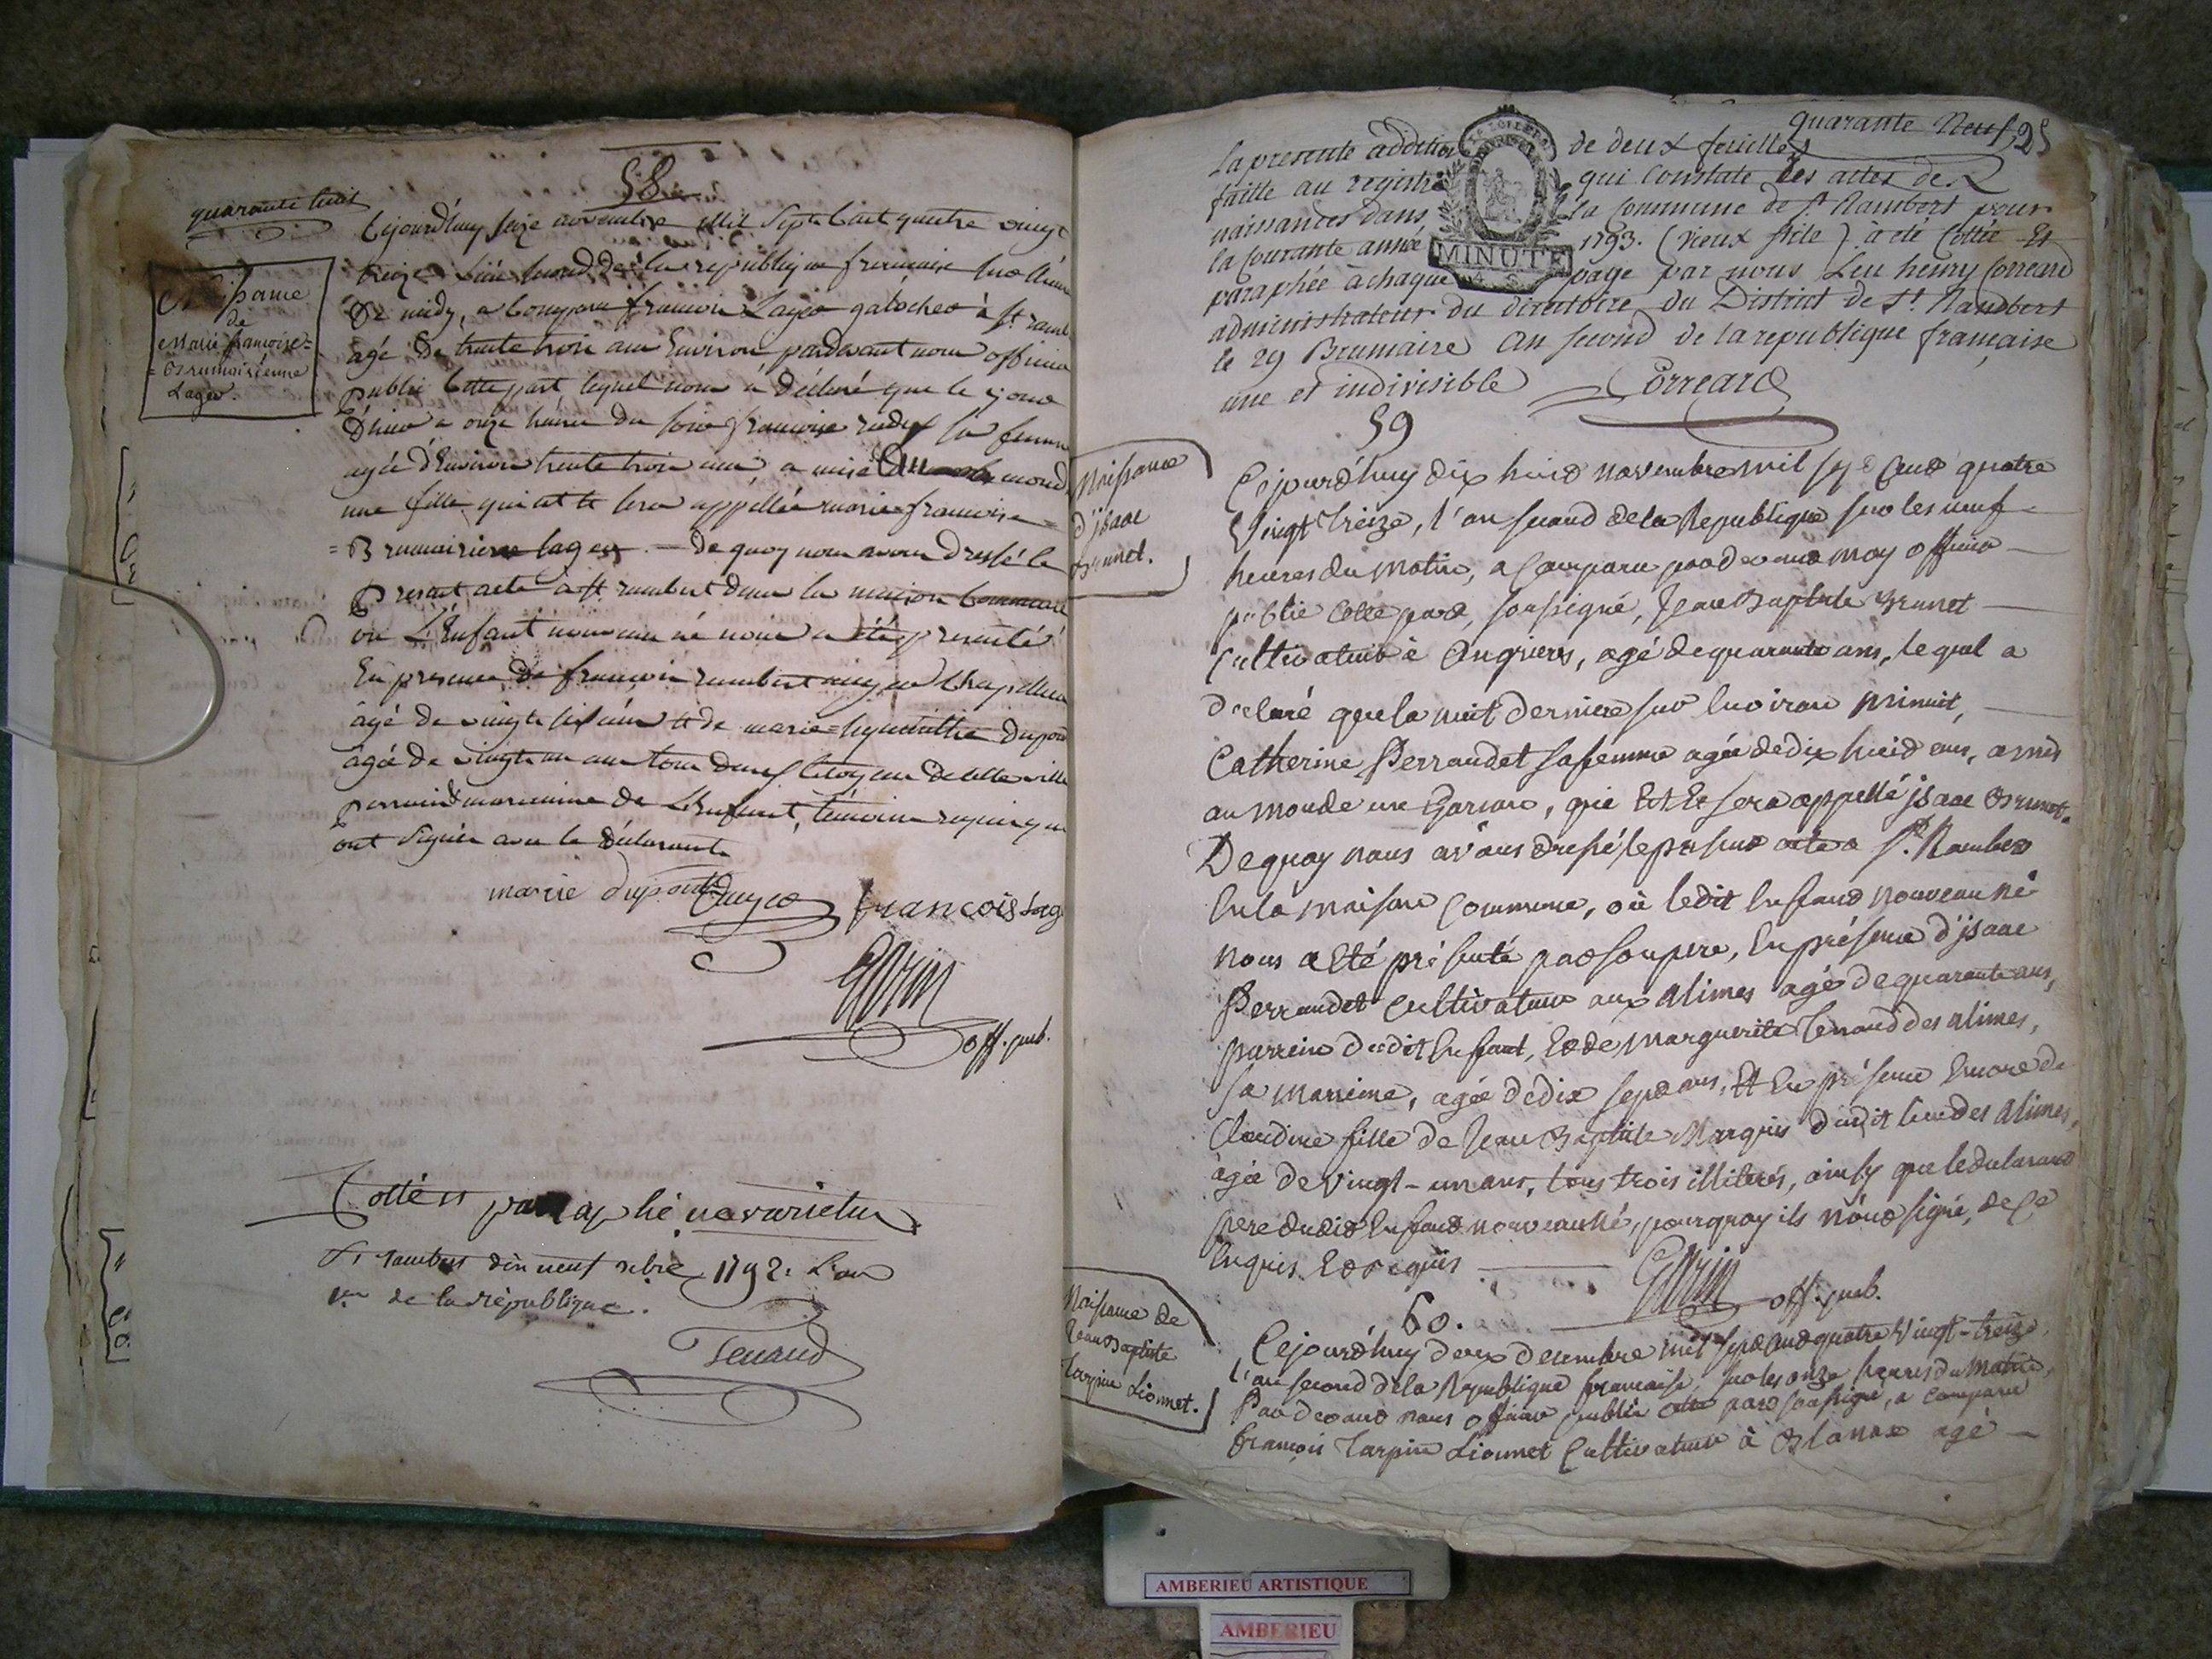 58
quarante huit
Naissance
de
Marie françoise =
= Brumairienne
Lager.
Cejourd'huy seize novembre mil sept cent quatre vingt
treize l'an second de la republique francaise sur l'heure
de midy, a comparu francois Lager galocher à st ramb
agé de trente trois ans Environ pardevant nous officier
public cotte part, lequel nous à déclaré que le jour
d'hier a onze heures du soir françoise sa femme
agée d'Environ trente trois ans a mise au monde
une fille qui est et sera appellée marie françoise =
= Brumairienne lager. — de quoy nous avons dressé le
présent acte à st rambert dans la maison Commune
ou L'Enfant nouveau né nous a été presenté
En presence de francois rambert chapellier
âgé de vingt six ans et de marie = hyacinthe dupont
âgée de vingt un ans tous deux Citoyens de cette ville
parrain et marraine de L'Enfant, témoins requis qui
ont signés avec le déclarant
marie dupont
françois Lag
off. pub.
Cotté et paraphé ne varietur
St rambert dix neuf xbre 1792. L'an
1er de la république.
Tenand
quarante Neuf, 25
La presente addition de deux feuillets
faitte au registre qui Constate les actes de
naissances dans la Commune de St. Rambert pour
la Courante année 1793. (vieux stile) a été Cottée Et
paraphée à chaque page par nous Leu henry Correard
MINUTE
administrateur du directoire du District de St. Rambert
le 29 Brumaire an second de la republique française
une et indivisible
Correard
59
Naissance
d'jsaac
Brunet.
Cejourd'huy dix huit novembre mil sept Cent quatre
Vingt Treize, l'an second de la Republique sur les neuf
heures du matin, a Comparu pardevant moy officier
public Cotte part, soussigné, Jean Baptiste Brunet
Cultivateur à Angrieres, agé de quarante ans, lequel a
déclaré que la nuit derniere sur Environ minuit,
Catherine Perraudet sa femme agée de dix huit ans, a mis
au monde un Garçon, qui Est Et sera appellé jsaac Brunet.
De quoy nous avons dressé le présent acte a St. Rambert
En la maison Commune, où ledit Enfant nouveau né
nous a Eté présenté par son pere, En présence d'jsaac
Perraudet Cultivateur aux alimes agé de quarante ans,
parrein dudit Enfant, Et de Marguerite Tenand des alimes,
sa marreine, agée de dix sept ans, Et En présence Encore de
Claudine fille de Jean Baptiste Marquis dudit lieu des alimes,
agée de Vingt-un ans, tous trois illiterés, ainsy que le déclarant
pere dudit Enfant nouveau né, pourquoy ils n'ont signé, de Ce
Enquis Et requis
off. pub.
60.
Naissance de
Jean Baptiste
Tarpin Lionnet.
Cejourd'huy deux decembre mil sept Cent quatre Vingt-treize
l'an second de la Republique française, sur les onze heures du matin,
Pardevant nous officier public Cotte part soussigné, a comparu
françois Tarpin Lionnet Cultivateur à Blanax agé
AMBERIEU ARTISTIQUE
AMBERIEU